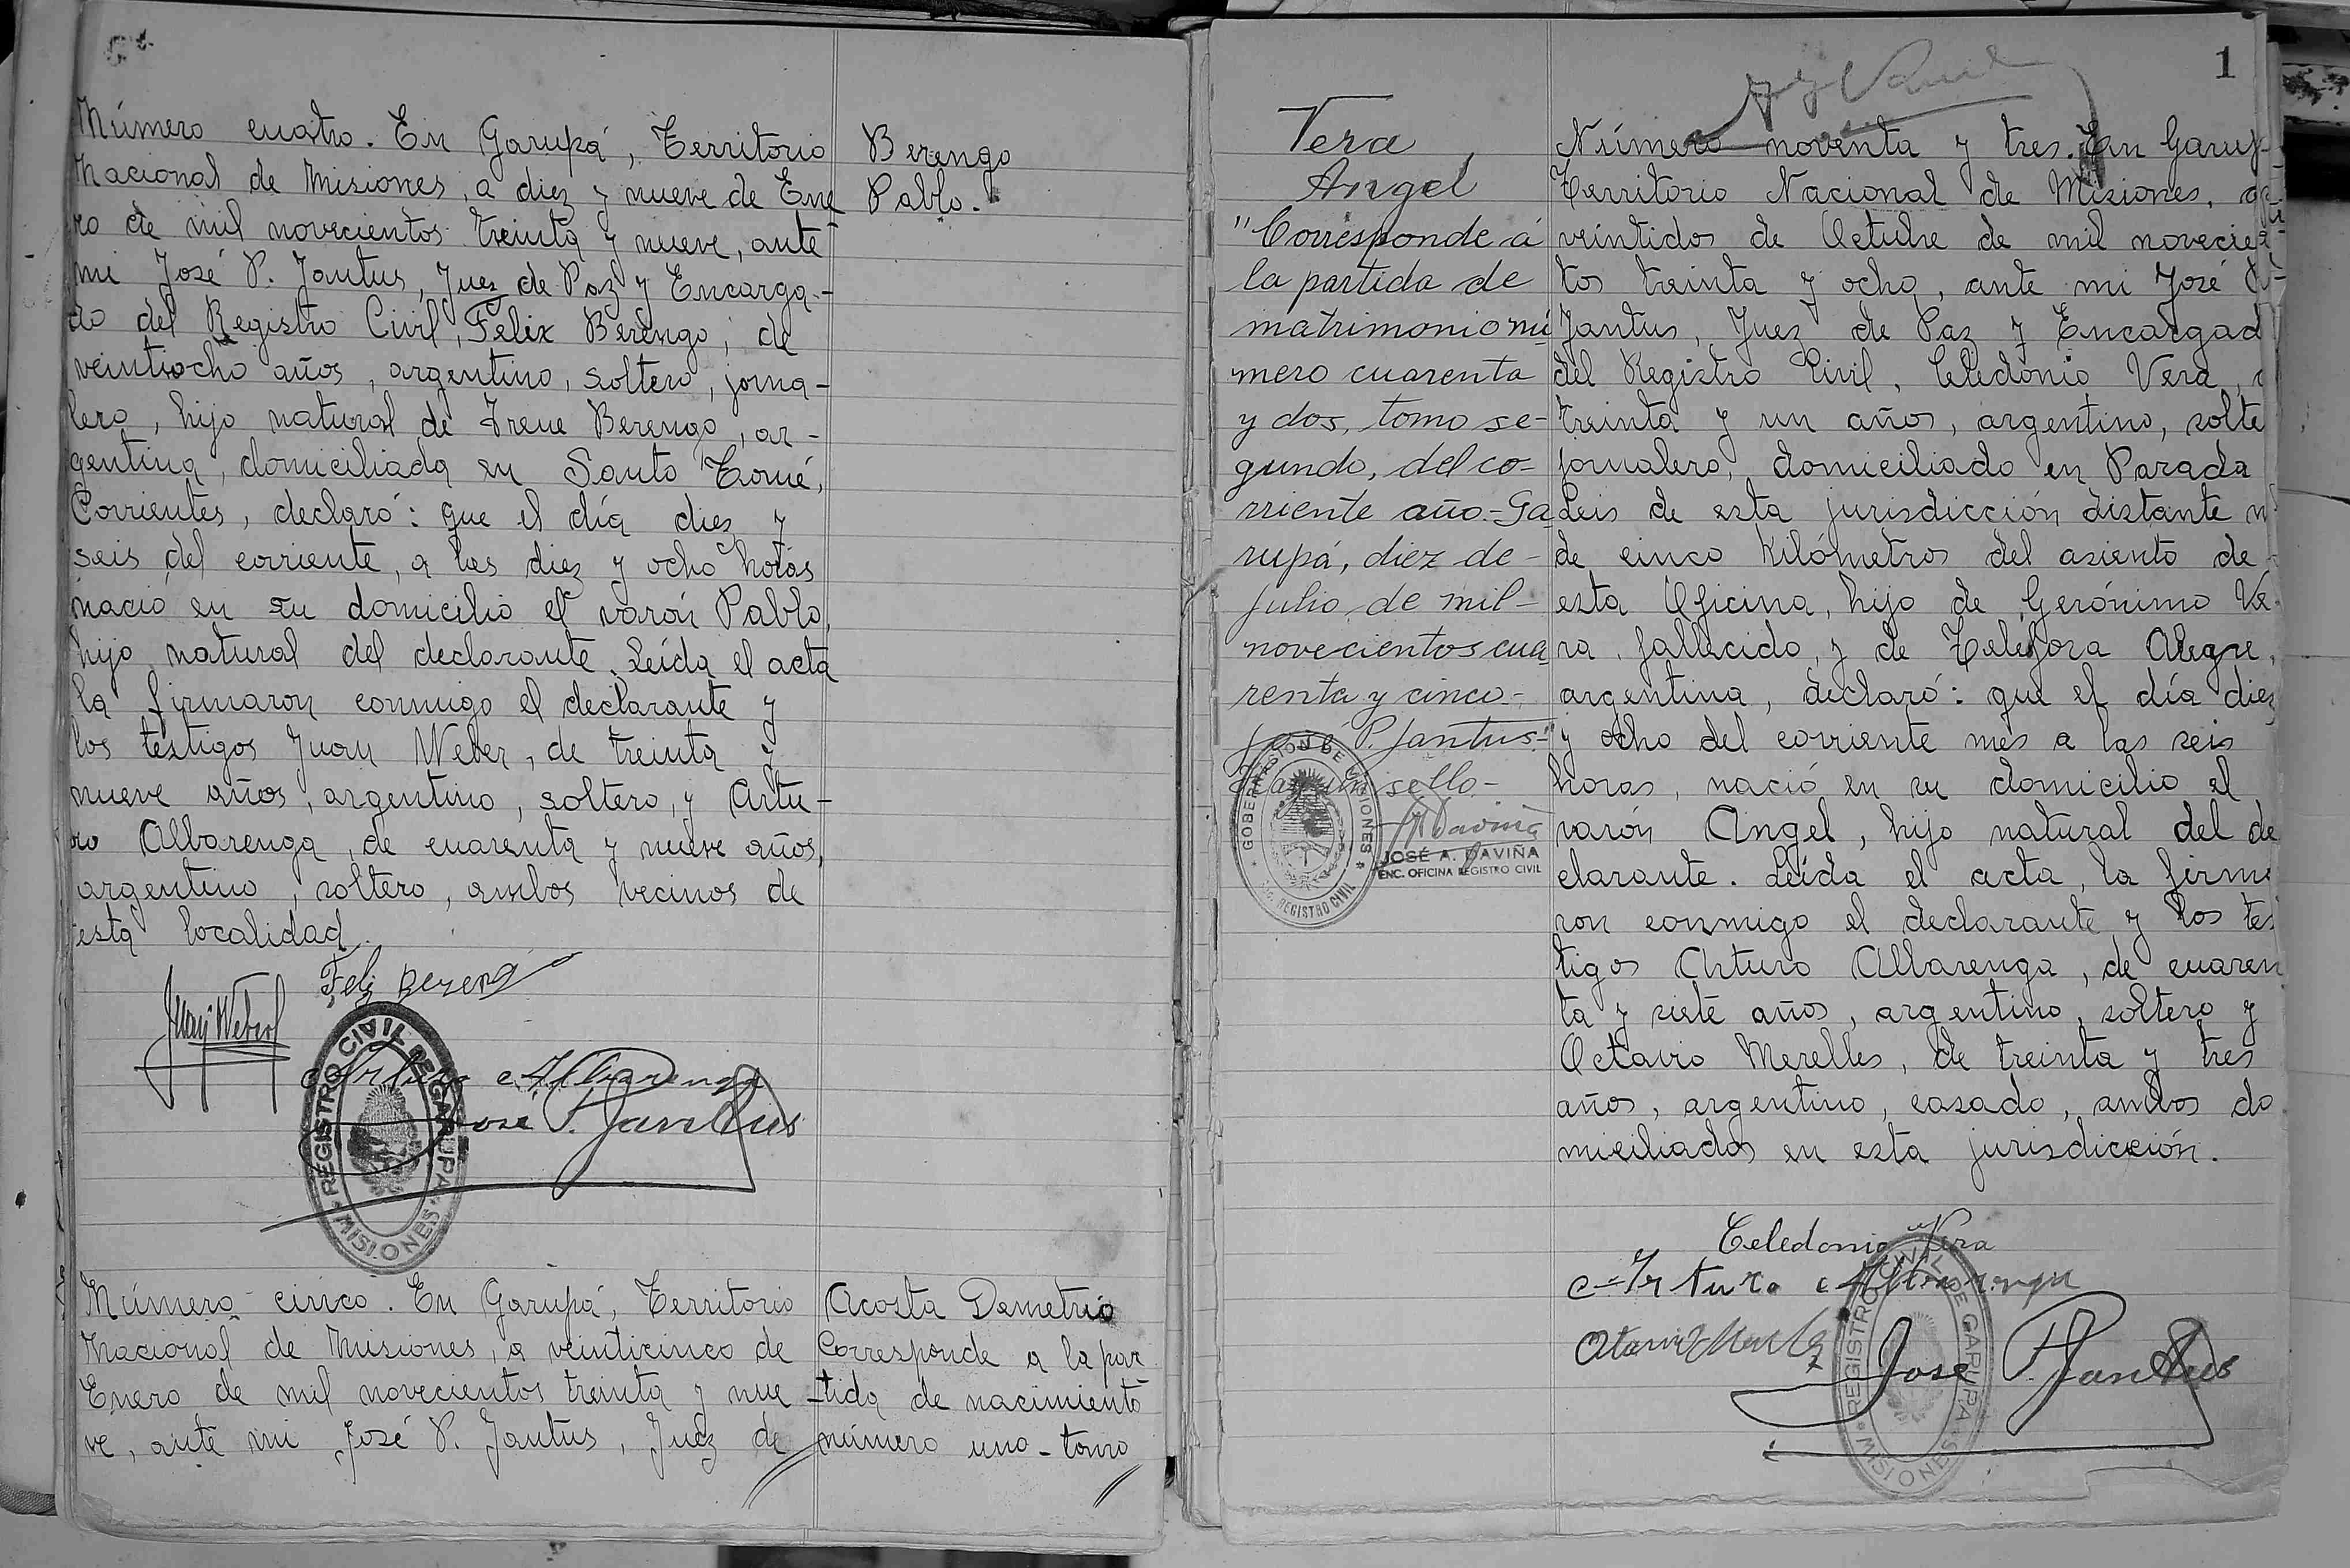 Número cuatro. En Garupá, Territorio
Nacional de Misiones, a diez y nueve de Ene-
ro de mil novecientos treinta y nueve, ante
mi José P. Jantus, Juez de Paz y Encarga-
do del Registro Civil, Felix Berengo, de
veintiocho años, argentino, soltero, jorna-
lero, hijo natural de Irene Berengo, ar-
gentina, domiciliada en Santo Tomé,
Corrientes, declaró: que el día diez y
seis del corriente, a las diez y ocho horas
nació en su domicilio el varón Pablo,
hijo natural del declarante. Leída el acta
la firmaron conmigo el declarante y
los testigos Juan Weber, de treinta y
nueve años, argentino, soltero, y Artu-
ro Albarenga, de cuarenta y nueve años,
argentino, soltero, ambos vecinos de
esta localidad.
Berengo
Pablo.-
Feli Bereng
Juan Weber
Arturo Albarenga
José P. Jantus
REGISTRO CIVIL DE GARUPA
MISIONES
Número cinco. En Garupá, Territorio
Nacional de Misiones, a veinticinco de
Enero de mil novecientos treinta y nue-
ve, ante mi José P. Jantus, Juez de
Acosta Demetrio
Corresponde a la par
tida de nacimiento
número uno - tomo
1
Vera
Angel
"Corresponde á
la partida de
matrimonio nú
mero cuarenta
y dos, tomo se-
gundo, del co-
rriente año.- Ga
rupá, diez de-
julio, de mil-
novecientos cua
renta y cinco.-
José P. Jantus.-"
sello.-
GOBERNASION DE MISIONES
REGISTRO CIVIL
JOSÉ A. DAVIÑA
ENC. OFICINA REGISTRO CIVIL
Número noventa y tres. En Garup
Territorio Nacional de Misiones, a
veintidos de Octubre de mil novecien
tos treinta y ocho, ante mi José P.
Jantus, Juez de Paz y Encargad
del Registro Civil, Celedonio Vera,
treinta y un años, argentino, solte
jornalero, domiciliado en Parada
Leis de esta jurisdicción distante
de cinco kilómetros del asiento de
esta Oficina, hijo de Gerónimo Ve-
ra, fallecido, y de Telésfora Alegre,
argentina, declaró: que el día diez
y ocho del corriente mes a las seis
horas, nació en su domicilio el
varón Angel, hijo natural del de
clarante. Leída el acta, la firma
ron conmigo el declarante y los tes
tigos Arturo Albarenga, de cuaren
ta y siete años, argentino, soltero y
Octavio Merelles, de treinta y tres
años, argentino, casado, ambos do
miciliados en esta jurisdicción.
Celedonio Vera
Arturo Albarenga
José P. Jantus
REGISTRO CIVIL DE GARUPA
MISIONES